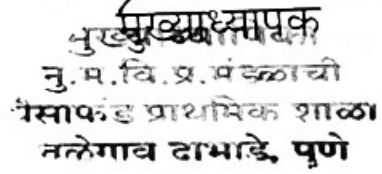 मुख्याध्यापक
नु.म.वि.प्र.मंडळाची
पैसाफंड प्राथमिक शाळा
तळेगाव दाभाडे, पुणे